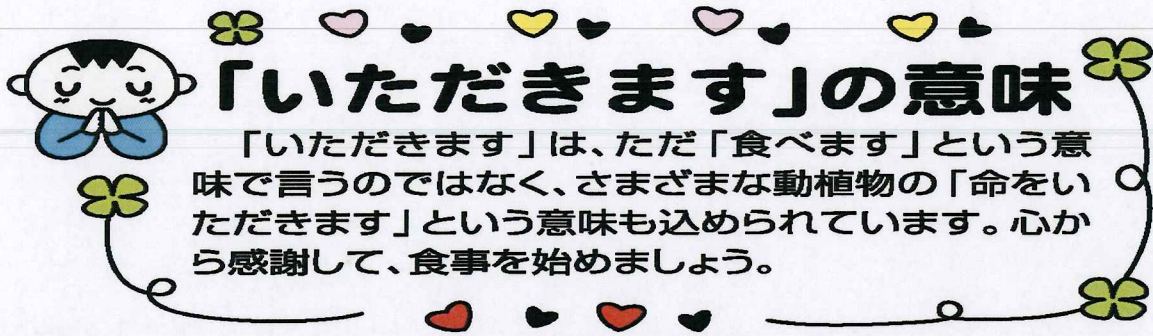 「いただきます」の意味
「いただきます」は、ただ「食べます」という意
味で言うのではなく、さまざまな動植物の「命をい
ただきます」という意味も込められています。心か
ら感謝して、食事を始めましょう。